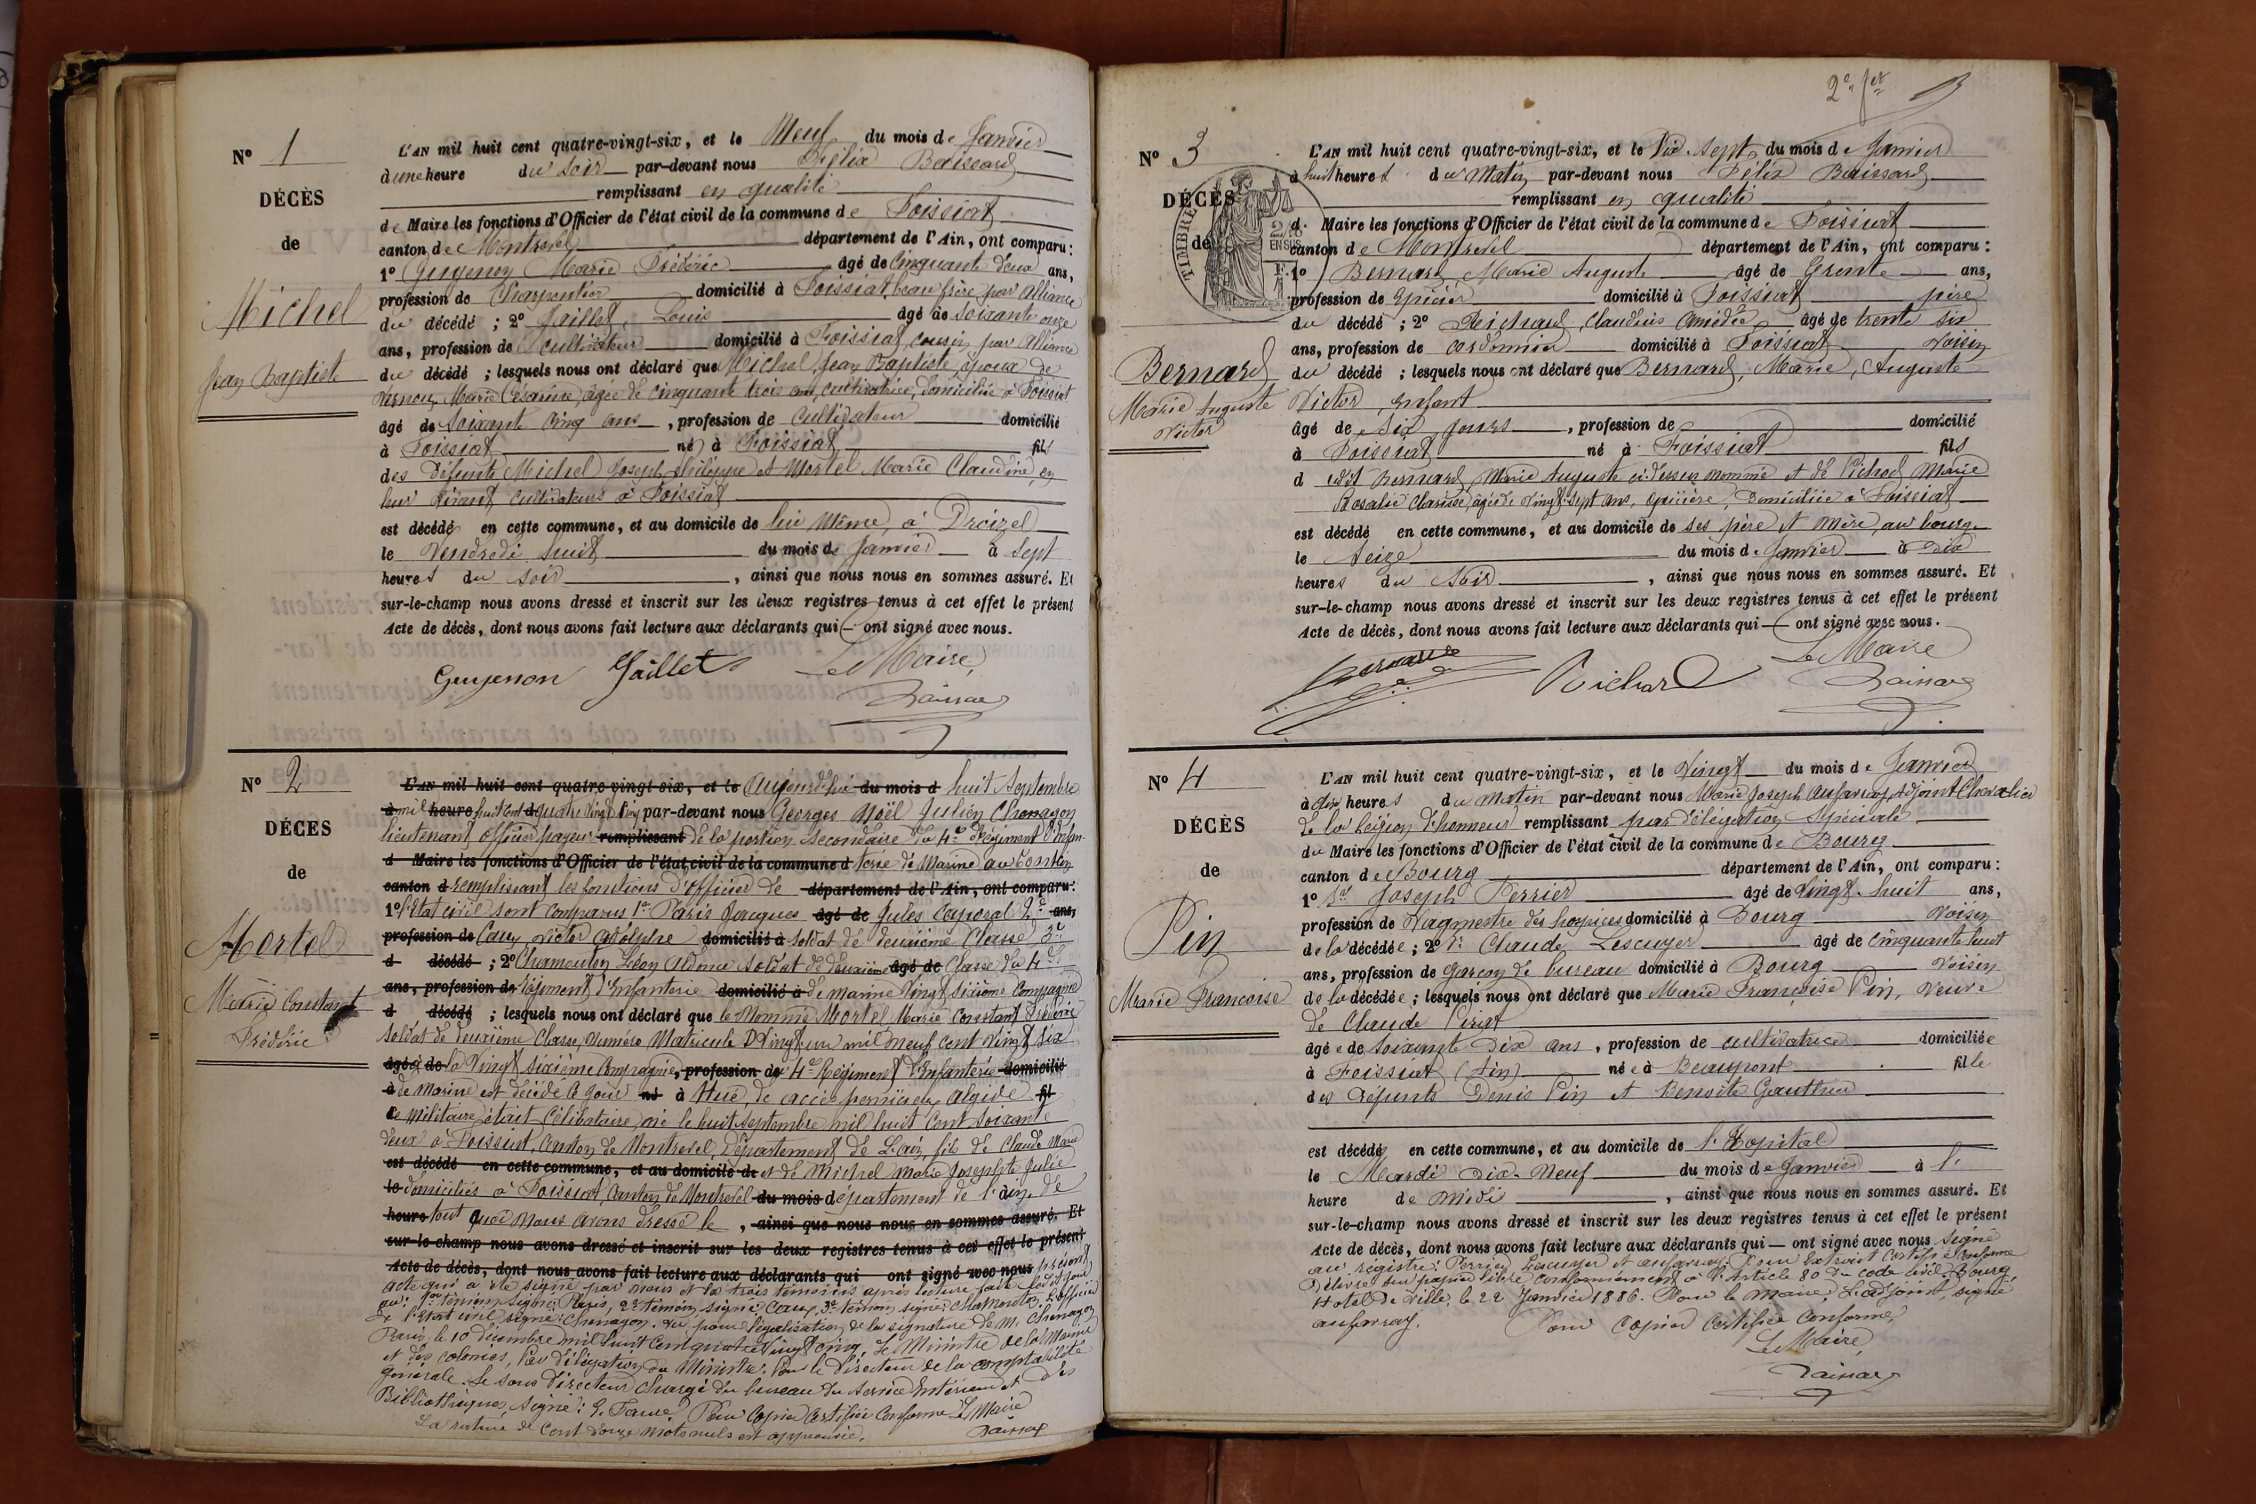 N° 1
DÉCÈS
de
Michel
Jean Baptiste
L'AN mil huit cent quatre-vingt-six, et le Neuf du mois de Janvier
à une heure du Soir par-devant nous Félix Baissard
remplissant en qualité
de Maire les fonctions d'Officier de l'état civil de la commune de Foissiat
canton de Montrevel département de l'Ain, ont comparu :
1° Guyenon Marie Frédéric âgé de Cinquante deux ans,
profession de Charpentier domicilié à Foissiat beau frère par Alliance
du décédé ; 2° Jaillet, Louis âgé de soixante onze
ans, profession de cultivateur domicilié à Foissiat, cousin par Alliance
du décédé ; lesquels nous ont déclaré que Michel Jean Baptiste époux de
Marie Césarine âgée de cinquante trois ans, cultivatrice, domiciliée à Foissiat
âgé de soixante cinq ans, profession de cultivateur domicilié
à Foissiat né à Foissiat fils
des défunts Michel Joseph Philippe et Mortel Marie Claudine, en
leur vivant cultivateurs à Foissiat
est décédé en cette commune, et au domicile de lui même, à
le Vendredi huit du mois de Janvier à sept
heures du soir, ainsi que nous nous en sommes assuré. Et
sur-le-champ nous avons dressé et inscrit sur les deux registres tenus à cet effet le présent
Acte de décès, dont nous avons fait lecture aux déclarants qui — ont signé avec nous.
Guyenon Jaillet Le Maire,
Baissard
N° 2
DÉCES
de
Mortel
Marie Constant
Frédéric
L'AN mil huit cent quatre-vingt-six, et le Aujourd'hui du mois d huit Septembre
à mil heure huit cent d quatre vingt cinq par-devant nous Georges Noël Julien Chanagon
lieutenant officier payeur remplissant de la portion secondaire du 4e Régiment d'Infan-
d Maire les fonctions d'Officier de l'état civil de la commune d terie de Marine au Tonkin
canton d remplissant les fonctions d'officier de département de l'Ain, ont comparu :
1° l'Etat civil sont comparus 1er Paris Jacques âgé de Jules Caporal 2e ans,
profession de Caux Victor Adolphe domicilié à soldat de deuxième Classe 3e
d décédé ; 2° Léon soldat de deuxième âgé de Classe du 4e
ans, profession de régiment d'Infanterie domicilié à de marine vingt sixième Compagnie
d décédé ; lesquels nous ont déclaré que le nommé Mortel Marie Constant Frédéric
soldat de deuxième Classe, numéro Matricule vingt un mil neuf cent vingt six
âgé de la vingt sixième Compagnie, profession de 4e Régiment d'Infanterie domicilié
à de marine est décédé à jour né à Hué, de accès pernicieux algide fil
Ce militaire était Célibataire, né le huit septembre mil huit cent soixante
deux à Foissiat, canton de Montrevel, Département de L'ain, fils de Claude Marie
est décédé en cette commune, et au domicile de et de Michel Marie Josephte Julie
le domiciliés à Foissiat canton de Montrevel du mois d département de l'ain. De
heure tout quoi Nous avons dressé le, ainsi que nous nous en sommes assuré. Et
sur-le-champ nous avons dressé et inscrit sur les deux registres tenus à cet effet le présent
Acte de décès, dont nous avons fait lecture aux déclarants qui ont signé avec nous présent
acte qui a été signé par nous et les trois témoins après lecture faite
1er témoin signé: Paris, 2e témoin signé Caux, 3e témoin signé: L'officier
de l'Etat civil signé: Chanagon. Vu pour légalisation de la signature de M. Chanagon
Paris, le 10 décembre mil huit cent quatre vingt cinq. Le Ministre de la Marine
et des colonies, Par délégation du Ministre. Pour le Directeur de la comptabilité
générale. Le sous Directeur chargé du bureau du Service Intérieur et des
Bibliothèques, signé: Pour Copie Certifiée Conforme Le Maire
La rature de Cent douze mots nuls est approuvée. Baissard
2e fet
N° 3
DÉCÈS
de
TIMBRE
2/10
EN SUS
Bernard
Marie Auguste
Victor
L'AN mil huit cent quatre-vingt-six, et le Dix-Sept du mois de Janvier
à huit heures du Matin par-devant nous Félix Baissard
remplissant en qualité
d. Maire les fonctions d'Officier de l'état civil de la commune de Foissiat
canton de Montrevel département de l'Ain, ont comparu :
1° Bernard, Marie Auguste âgé de Trente ans,
profession de Epicier domicilié à Foissiat père
du décédé ; 2° Richard, Claudius Amédée âgé de trente six
ans, profession de cordonnier domicilié à Foissiat voisin
du décédé ; lesquels nous ont déclaré que Bernard, Marie, Auguste
Victor, enfant
âgé de six jours, profession de domicilié
à Foissiat né à Foissiat fils
d udit Bernard, Marie Auguste ci-dessus nommé et de Pichod Marie
Rosalie Clarisse, âgée de vingt-sept ans, épicière, domiciliée à Foissiat
est décédé en cette commune, et au domicile de ses père et mère, au bourg
le seize du mois de Janvier à dix
heures du soir, ainsi que nous nous en sommes assuré. Et
sur-le-champ nous avons dressé et inscrit sur les deux registres tenus à cet effet le présent
Acte de décès, dont nous avons fait lecture aux déclarants qui — ont signé avec nous.
Bernard Richard Le Maire
Baissard
N° 4
DÉCÈS
de
Pin
Marie Françoise
L'AN mil huit cent quatre-vingt-six, et le Vingt du mois de Janvier
à dix heures du Matin par-devant nous Marie Joseph Adjoint Chevalier
de la Légion d'honneur remplissant par délégation Spéciale
du Maire les fonctions d'Officier de l'état civil de la commune de Bourg
canton de Bourg département de l'Ain, ont comparu :
1° Sr Joseph Perrier âgé de Vingt-huit ans,
profession de Vaguemestre des hospices domicilié à Bourg Voisin
de la décédée ; 2° Sr Claude Lescuyer âgé de cinquante huit
ans, profession de garçon de bureau domicilié à Bourg Voisin
de la décédée ; lesquels nous ont déclaré que Marie Françoise Pin, Veuve
de Claude Pirat
âgée de soixante dix ans, profession de cultivatrice domiciliée
à Foissiat (Ain) née à Beaupont fille
des défunts Denis Pin et Benoite Gauthier
est décédé en cette commune, et au domicile de l'Hopital
le Mardi dix-Neuf du mois de Janvier à 1.
heure de midi, ainsi que nous nous en sommes assuré. Et
sur-le-champ nous avons dressé et inscrit sur les deux registres tenus à cet effet le présent
Acte de décès, dont nous avons fait lecture aux déclarants qui — ont signé avec nous signé
au registre: Perrier, Lescuyer et Pour Extrait certifié conforme
Délivré sur papier libre conformément à l'Article 80 du code civil. Bourg
Hotel de Ville, le 22 Janvier 1886. Pour le Maire: L'adjoint, signé
Pour Copie Certifiée Conforme,
Le Maire,
Baissard